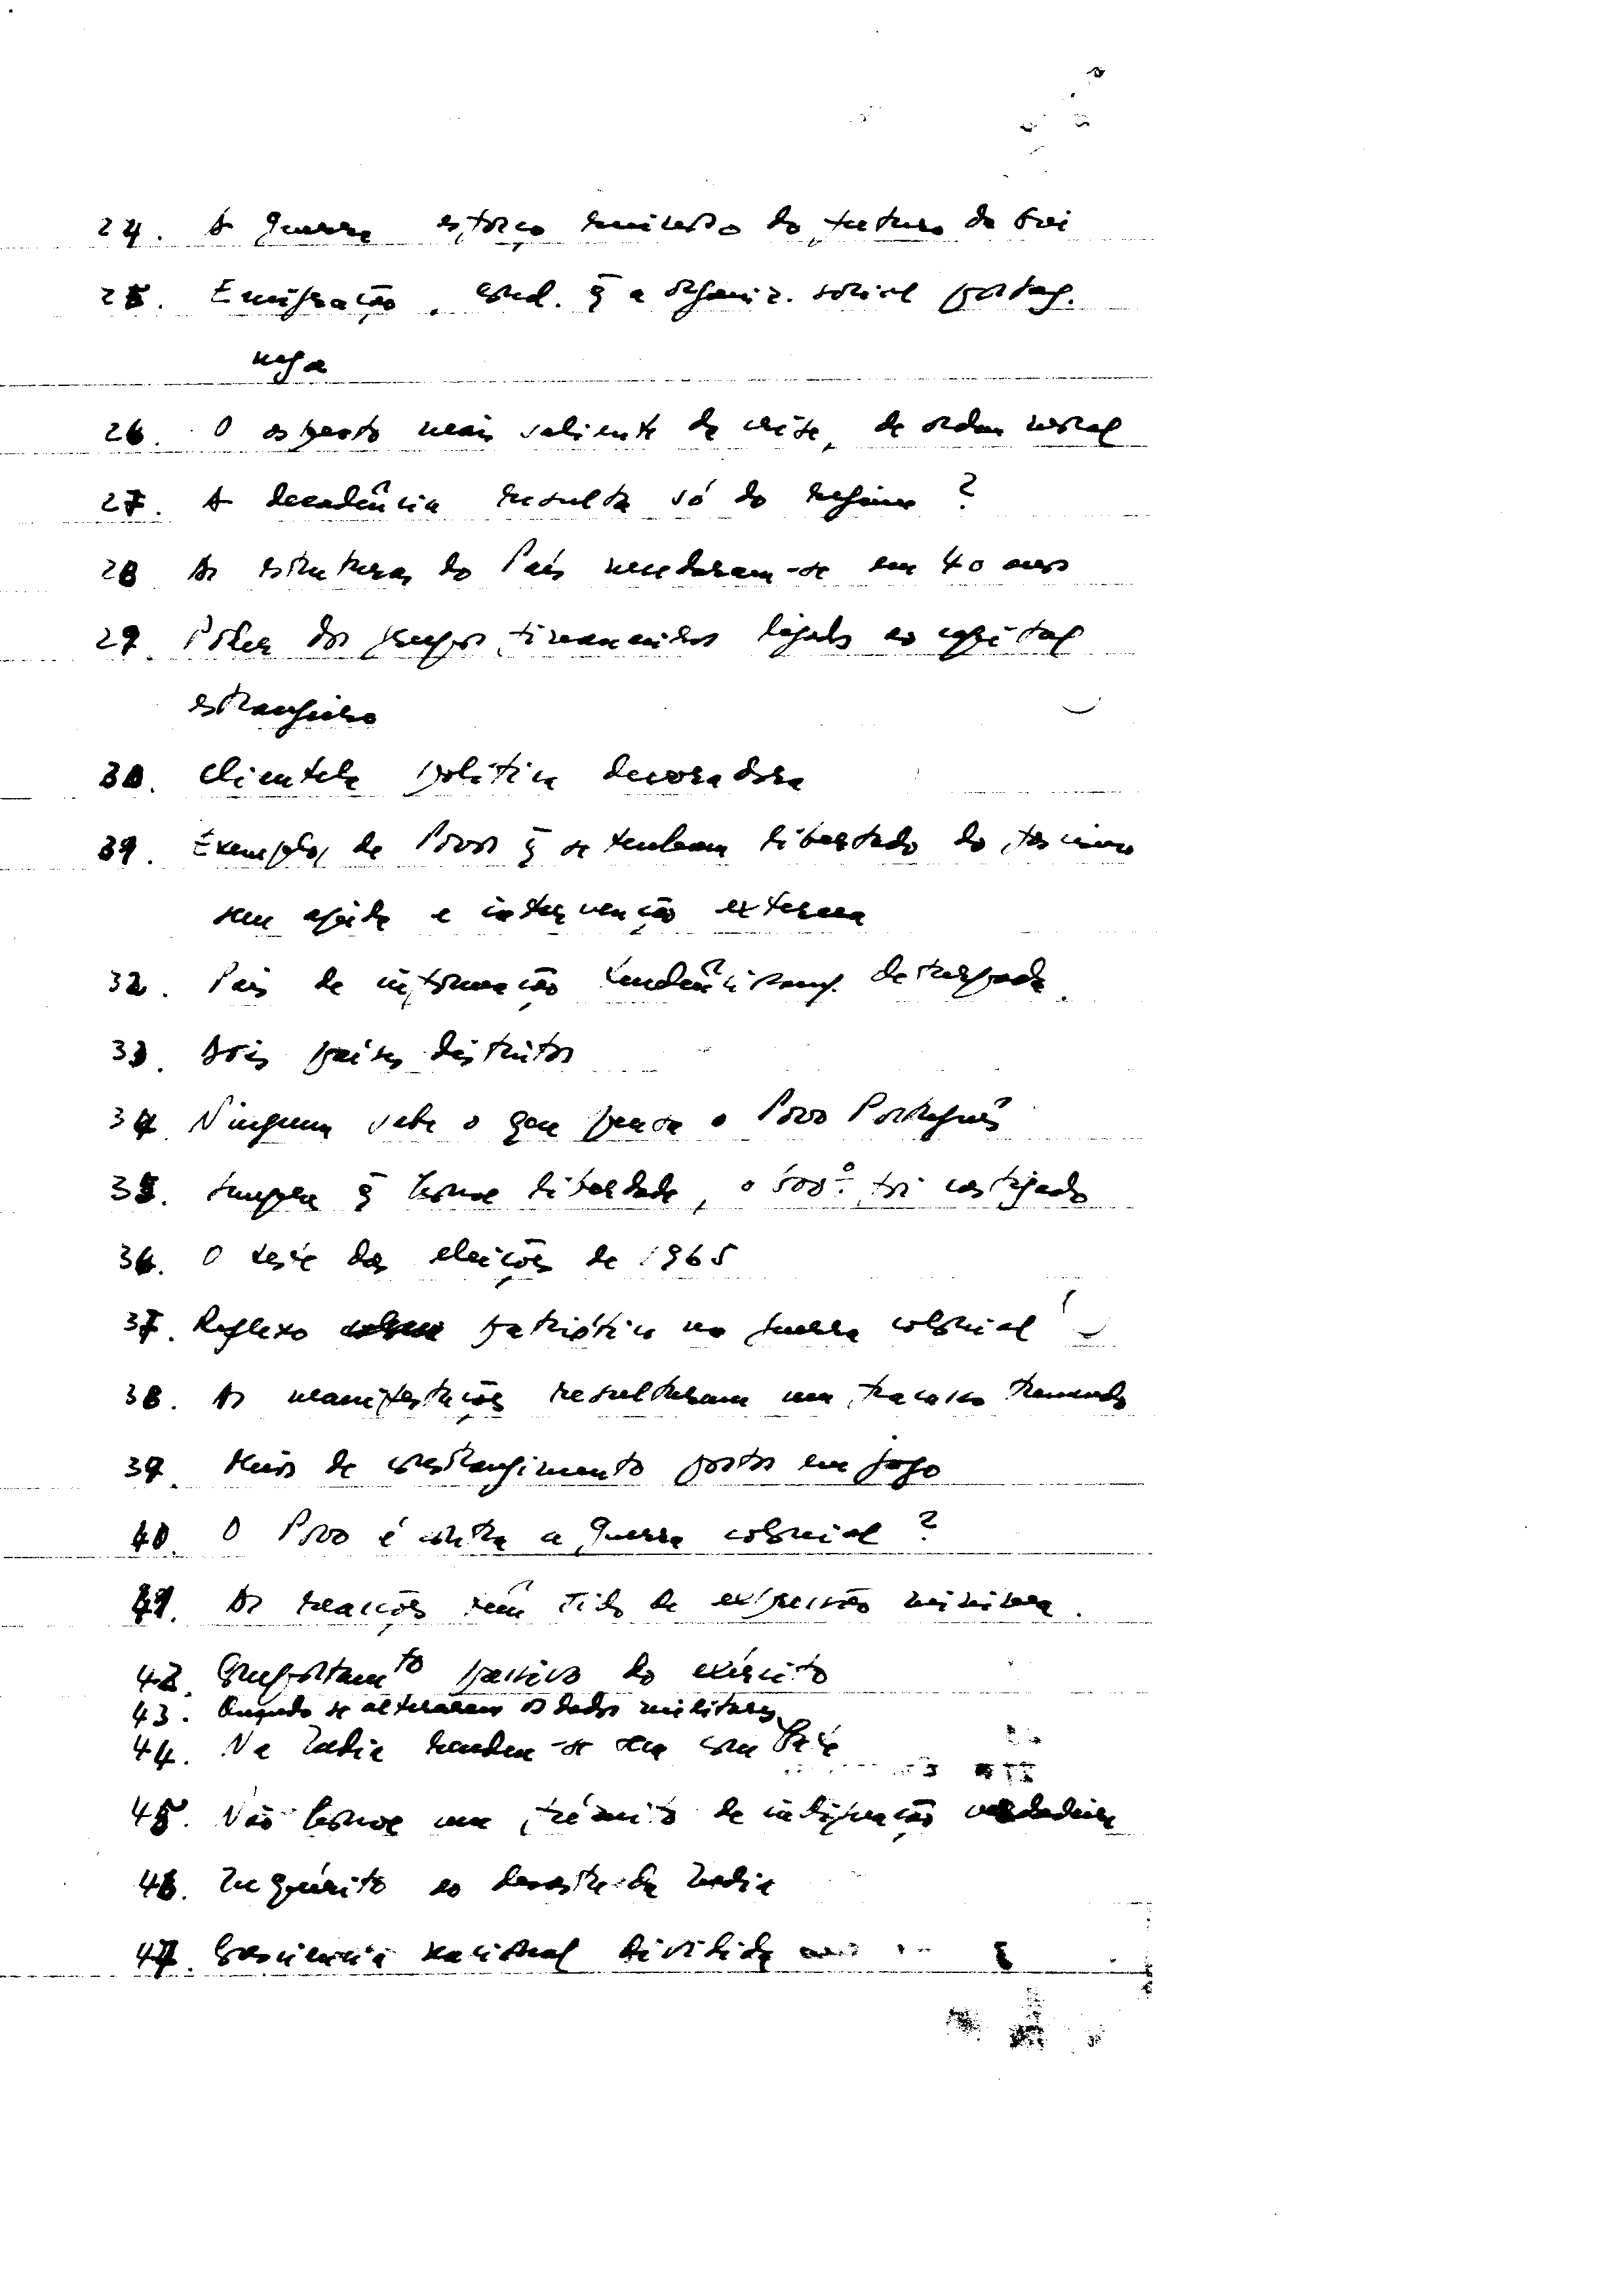 24. A guerra esforço do futuro da
25. Emigração, cond. q̄ a organiz. social portug.
nega
26. O aspecto mais saliente da crise, de ordem moral
27. A decadência resulta só do regime ?
28 As estruturas do País mudaram-se em 40 anos
29. Poder dos grupos financeiros ligados ao capital
estrangeiro
30. Clientela política devoradora
31. Exemplos de Povos q̄ se tenham libertado do fascismo
sem ajuda e intervenção externa
32. País de informação deturpada
33. Dois países distintos
34. Ninguem sabe o que pensa o Povo Português
35. Sempre q̄ houve liberdade, o foi castigado
36. O teste das eleições de 1965
37. Reflexo patriótico na guerra colonial
38. As manifestações resultaram um fracasso tremendo
39. Meios de constrangimento postos em jogo
40. O Povo é contra a guerra colonial ?
41. As reacções têm tido de expressão mínima.
42. Comportamto passivo do exército
43. Quando se alterarem os dados militares
44. Na India rendeu-se sem combate
45. Não houve um frémito de indignação verdadeira
46. Inquérito ao desastre da India
47. Consciência nacional dividida